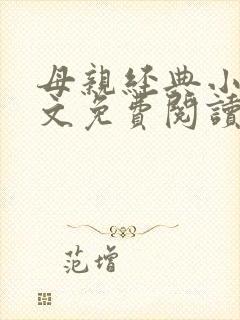 母親經典小
文免費閱讀
范增